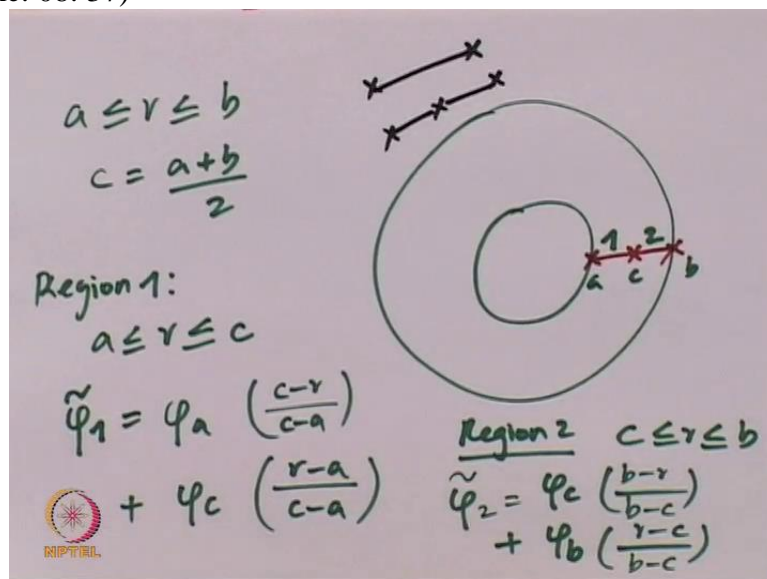 a ≤ r ≤ b
c = \frac{a+b}{2}
1 2
a c b
Region 1:
a ≤ r ≤ c
\tilde{φ}_1 = φ_a (\frac{c-r}{c-a})
+ φ_c (\frac{r-a}{c-a})
Region 2 c ≤ r ≤ b
\tilde{φ}_2 = φ_c (\frac{b-r}{b-c})
+ φ_b (\frac{r-c}{b-c})
NPTEL